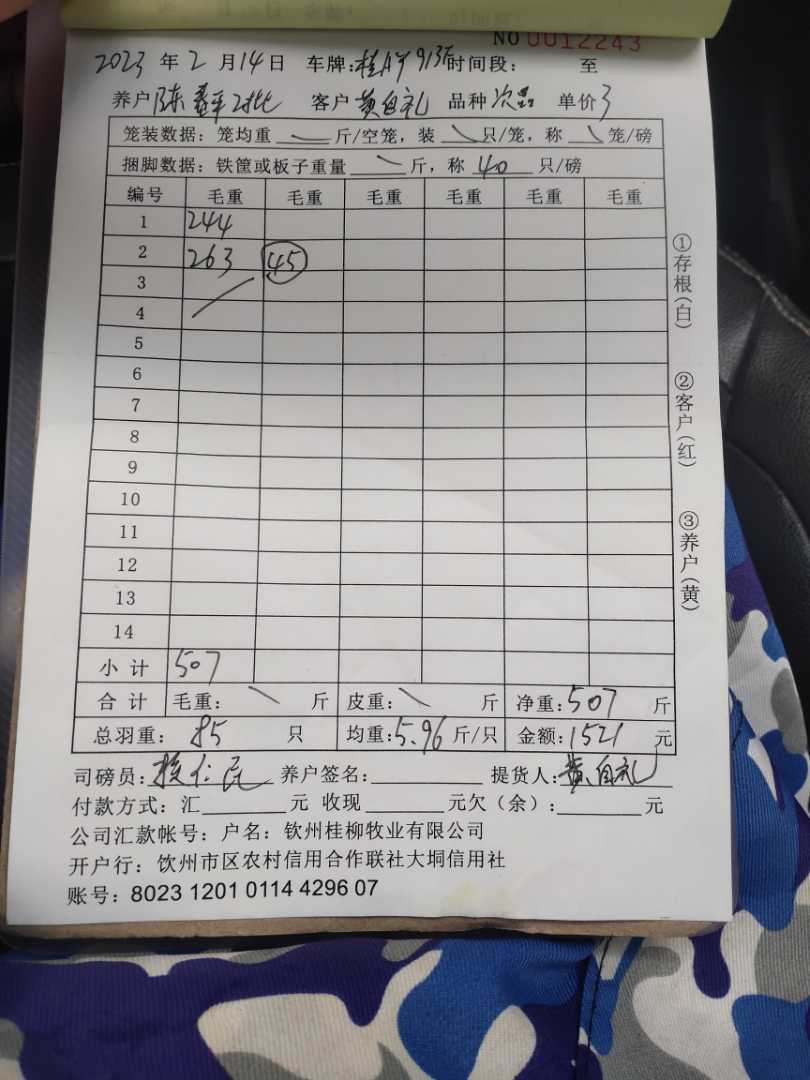 NO 0012243
2023 年 2 月 14 日 车牌: 桂 913 时间段: 至
养户 陈 平 对比 客户 黄自礼 品种 次品 单价 3
笼装数据: 笼均重 斤/空笼, 装 只/笼, 称 笼/磅
捆脚数据: 铁筐或板子重量 斤, 称 40 只/磅
编号 毛重 毛重 毛重 毛重 毛重 毛重
1 244
2 263 45
3
4
5
6
7
8
9
10
11
12
13
14
小计 507
合计 毛重: 斤 皮重: 斤 净重: 507 斤
总羽重: 85 只 均重: 5.96 斤/只 金额: 1521 元
司磅员: 养户签名: 提货人: 黄自礼
付款方式: 汇 元 收现 元欠(余): 元
公司汇款帐号: 户名: 钦州桂柳牧业有限公司
开户行: 饮州市区农村信用合作联社大垌信用社
账号: 8023 1201 0114 4296 07
①存根(白)
②客户(红)
③养户(黄)